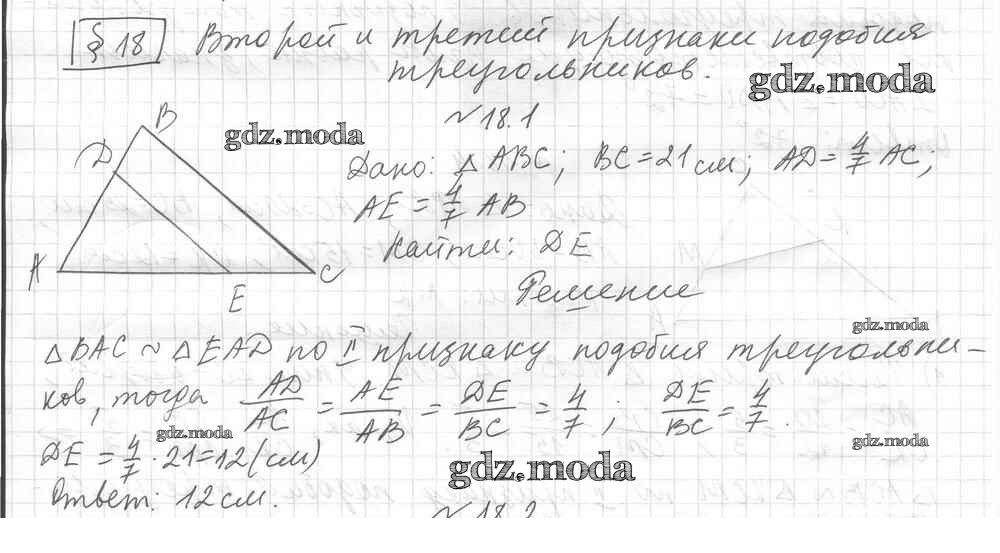 § 18 Второй и третий признаки подобия
треугольников.
gdz.moda
№18.1
gdz.moda
B
D
A
E
C
Дано: △ABC; BC=21 см; AD=4/7 AC;
AE=4/7 AB
Найти: DE
Решение
gdz.moda
△BAC ~ △EAD по II признаку подобия треугольни-
ков, тогда AD/AC = AE/AB = DE/BC = 4/7; DE/BC = 4/7.
gdz.moda
gdz.moda
DE = 4/7 · 21=12(см)
gdz.moda
Ответ: 12см.
№18.2